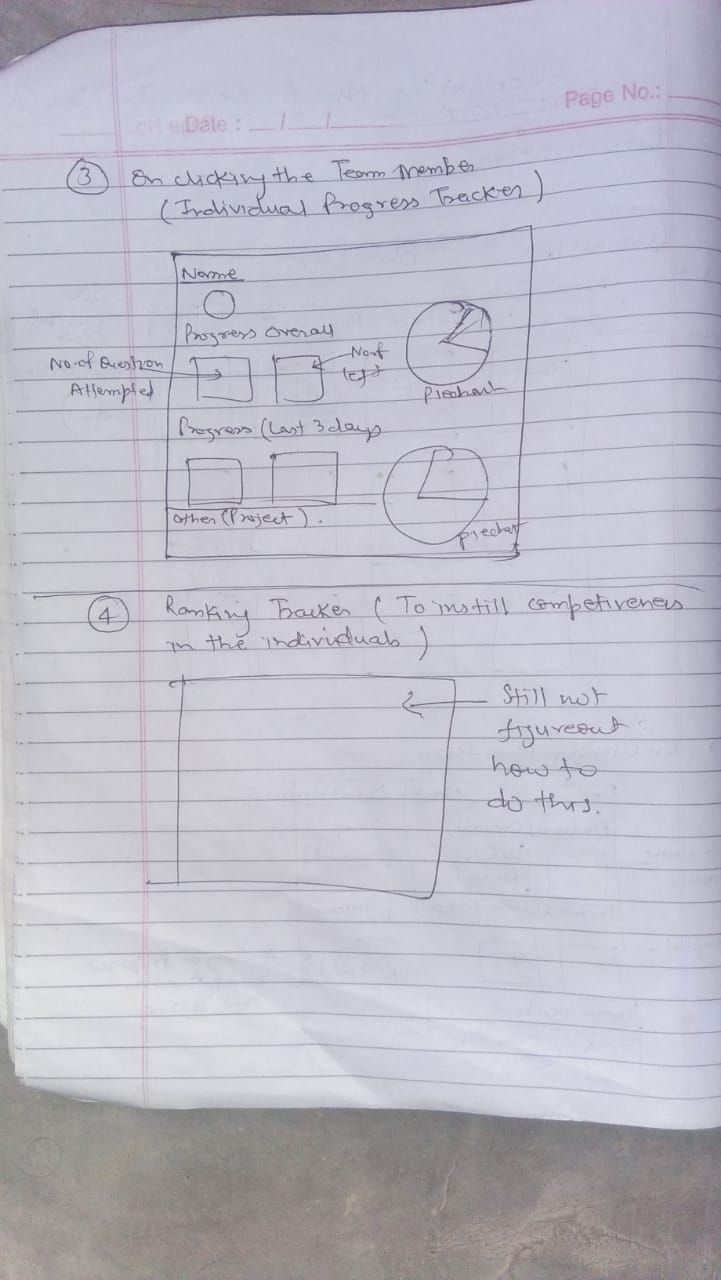 Page No.:
Date : __/__/__
3 On clicking the Team Member
(Individual Progress Tracker)
Name
Progress Overall
No. of Question
Attempted
No. of
left
Piechart
Progress (Last 3 days
Other (Project).
piechart
4 Ranking Tracker (To instill competiveness
in the individuals)
Still not
figureout
how to
do this.